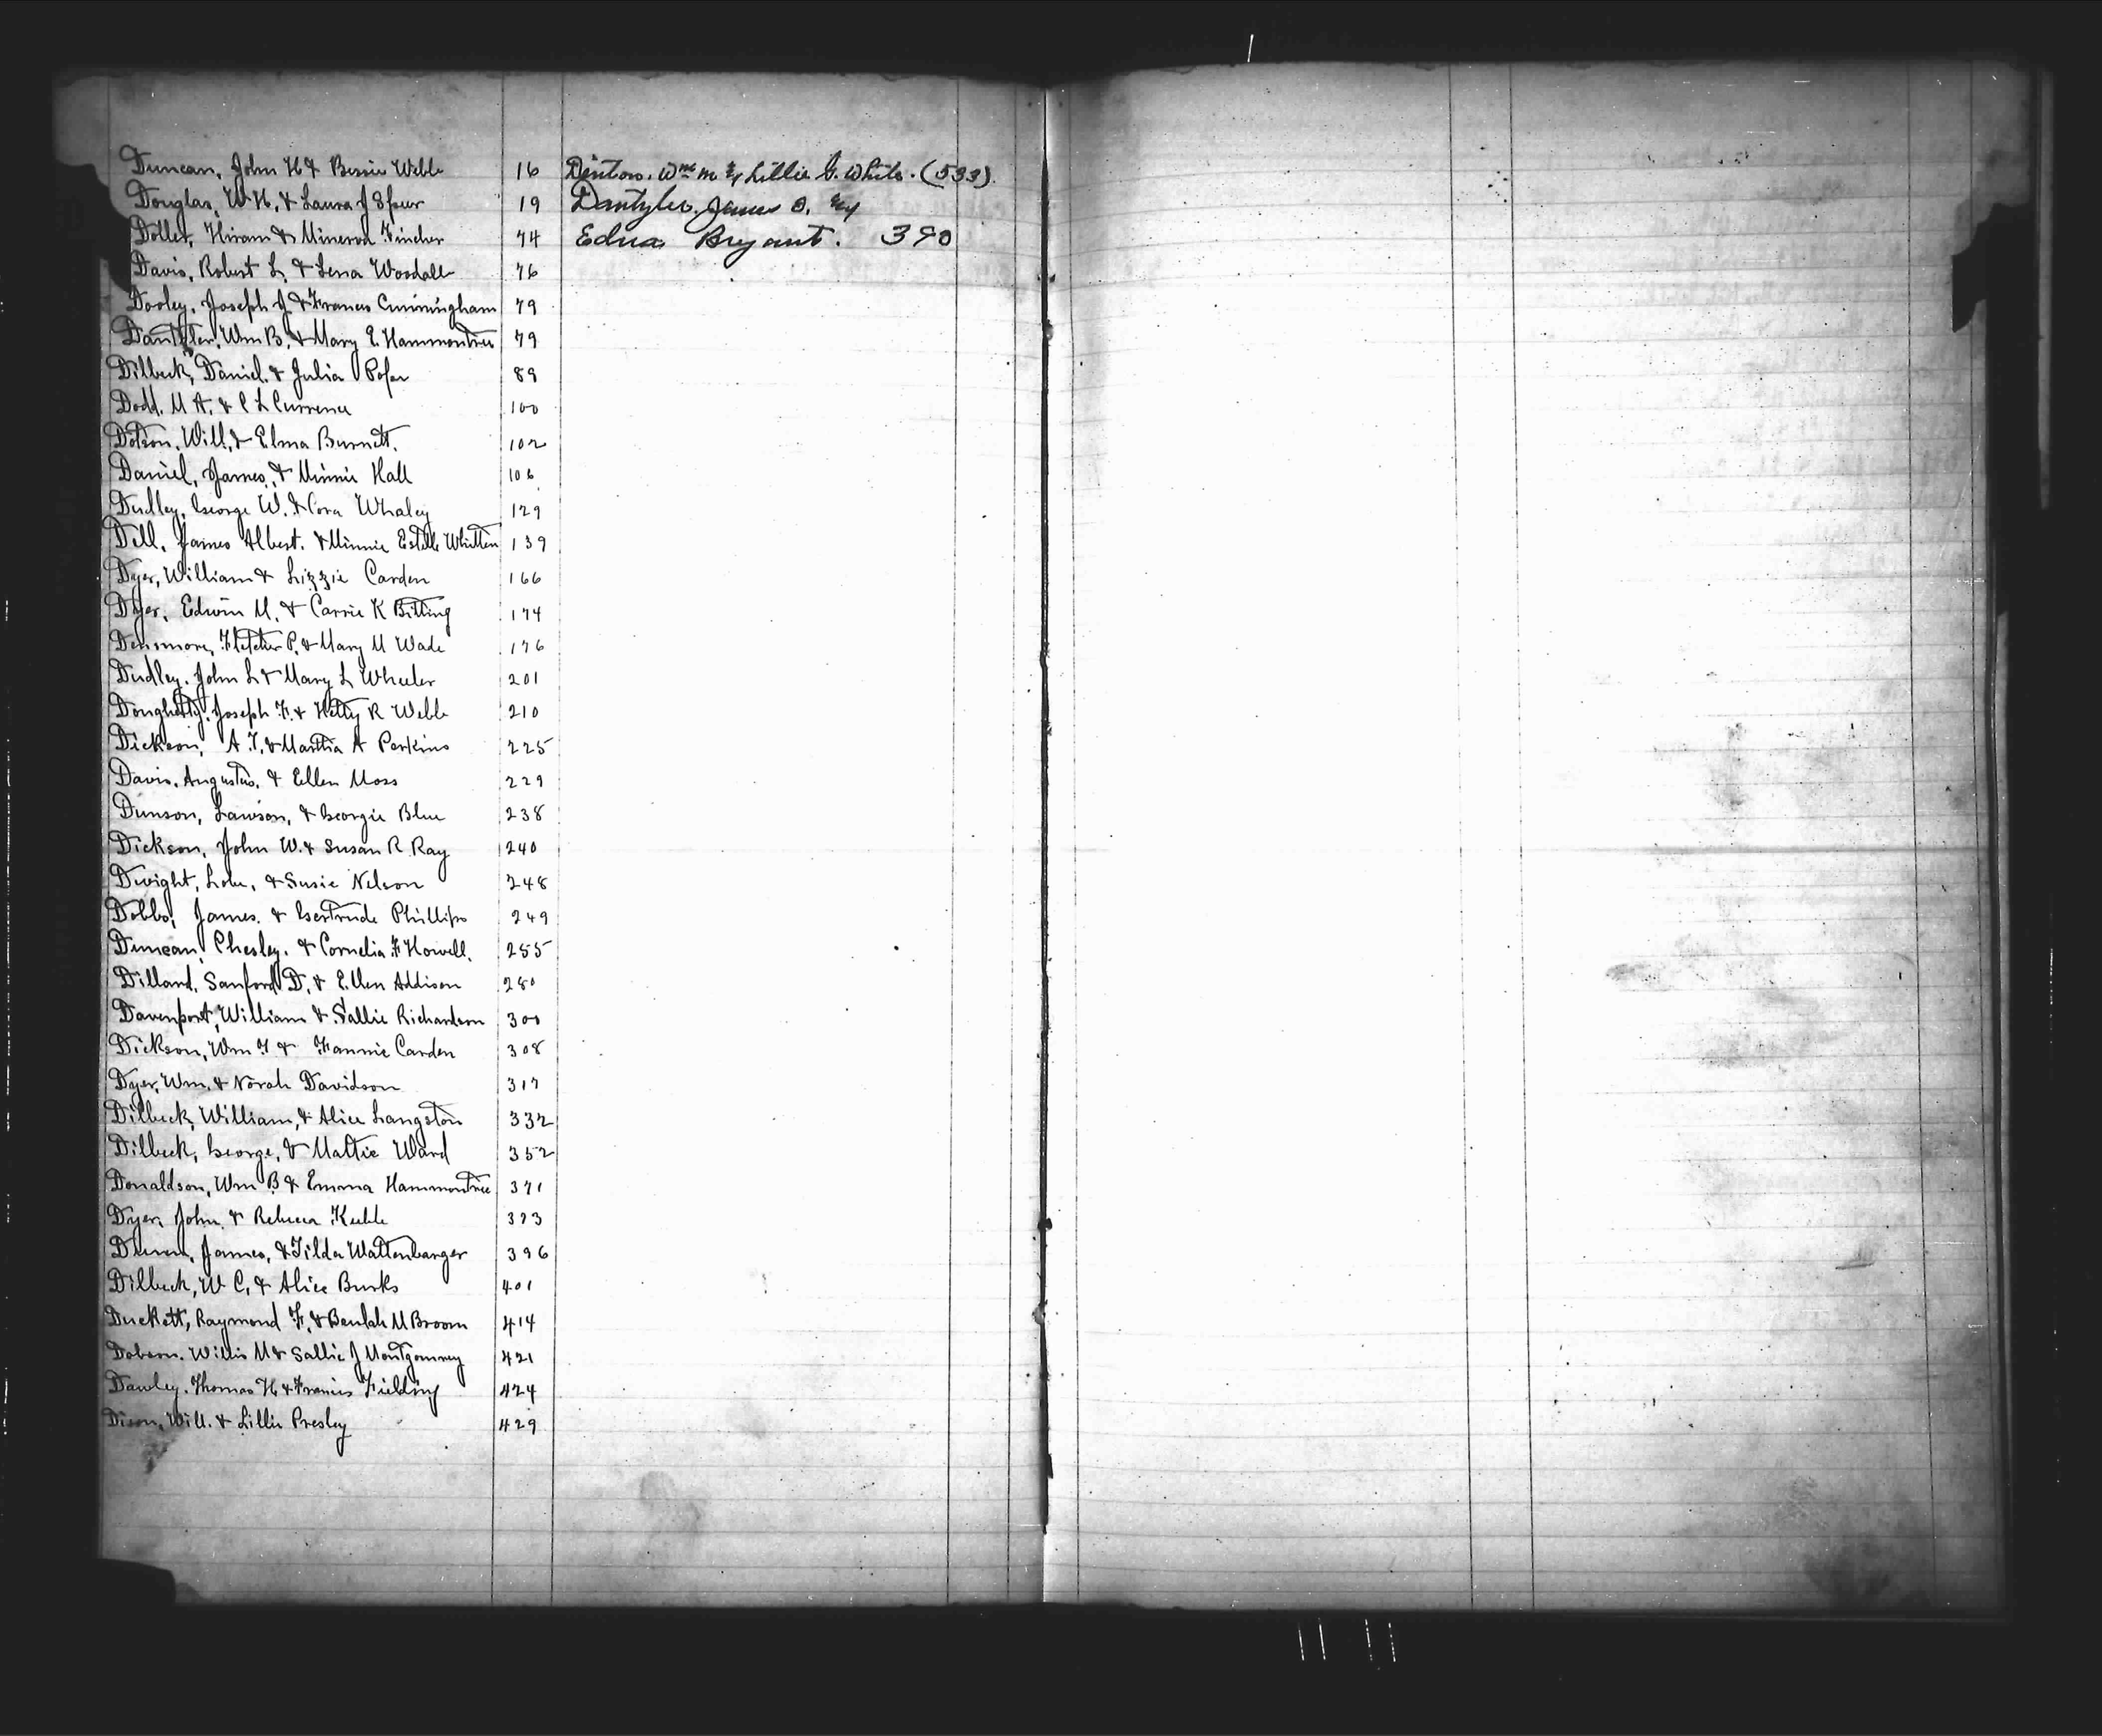 Duncan, John H & Bessie Webb 16
Douglas, W H, & Laura J Spur 19
Dollet, Hiram & Minerva Fincher 74
Davis, Robert L, & Lena Woodall 76
Dooley, Joseph J & Frances Cunningham 79
Dantzler, Wm B, & Mary E Hammontree 79
Dilbeck, Daniel, & Julia 89
Dodd, M A, & C L 100
Dotson, Will, & Elma Burnett. 102
Daniel, James, & Minnie Hall 106
Dudley, George W. & Cora Whaley 129
Dill, James Albert, & Minnie Estelle Whitten 139
Dyer, William & Lizzie Carden 166
Dyer, Edwin M, & Carrie K Bitting 174
Densmore, Fletcher P, & Mary M Wade 176
Dudley, John L & Mary L Wheeler 201
Dougherty, Joseph F. & Hetty R Webb 210
Dickson, A T, & Martha A Perkins 225
Davis, Augustus, & Ellen Moss 229
Dunson, Lawson, & Georgie Blue 238
Dickson, John W. & Susan R Ray 240
Dwight, & Susie Nelson 248
Dobbs, James, & Gertrude Phillips 249
Duncan, Chesley, & Cornelia F Howell, 255
Dillard, Sanford D, & Ellen Addison 280
Davenport, William & Sallie Richardson 300
Dickson, Wm T & Fannie Carden 308
Dyer, Wm, & Norah Davidson 317
Dilbeck, William, & Alice Langston 332
Dilbeck, George, & Mattie Ward 352
Donaldson, Wm B & Emma Hammontree 371
Dyer, John, & Rebecca Keeble 373
James, & Tilda Wattenbarger 396
Dilbeck, W C, & Alice Burks 401
Duckett, Raymond F, & Beulah M Broom 414
Dobson, Willis M & Sallie J Montgomery 421
Dawley, Thomas H & Francis Fielding 424
Dixon, Will, & Lillie Presley 429
Denton, Wm M & Lillie G. White. (533)
Dantzler, James O. &
Edna Bryant. 390